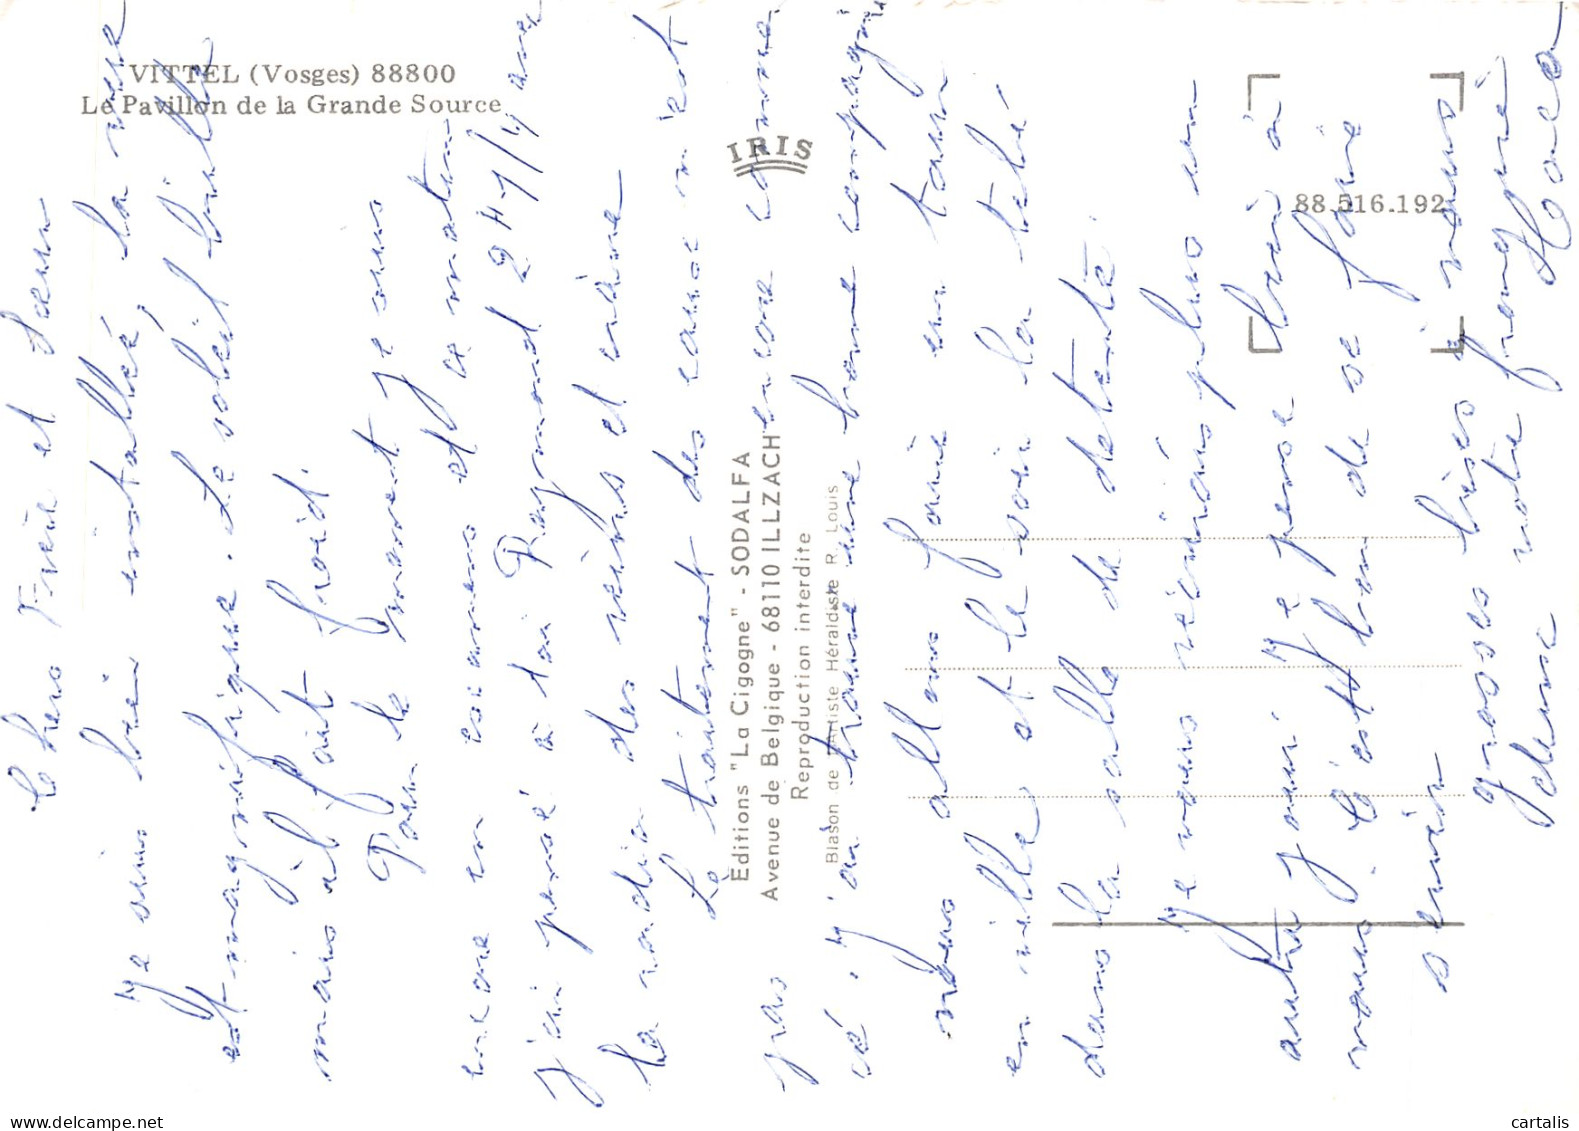 VITTEL (Vosges) 88800
Le Pavillon de la Grande Source
IRIS
88.516.192
Éditions "La Cigogne" - SODALFA
Avenue de Belgique - 68110 ILLZACH
Reproduction interdite
Blason de l'Artiste Héraldiste R. Louis
Chers Frère et Sœur
Je suis bien installée, la vue
est magnifique. Le soleil brille
mais il fait froid.
Pour le moment je suis
encore en examens et ce matin
j'ai pensé à toi Raymond 24 /
la radio des reins et
Le traitement des cures n'est
pas encore commen
cé. J'ai trouvé une bonne compagnie
nous allons faire un tour
en ville et le soir la télé
dans la salle de détente.
Je vous écrirais plus un
autre jour. Je pense bien à
vous. C'est bon de se faire
servir
grosses bises à vous
deux votre frangine
cartalis